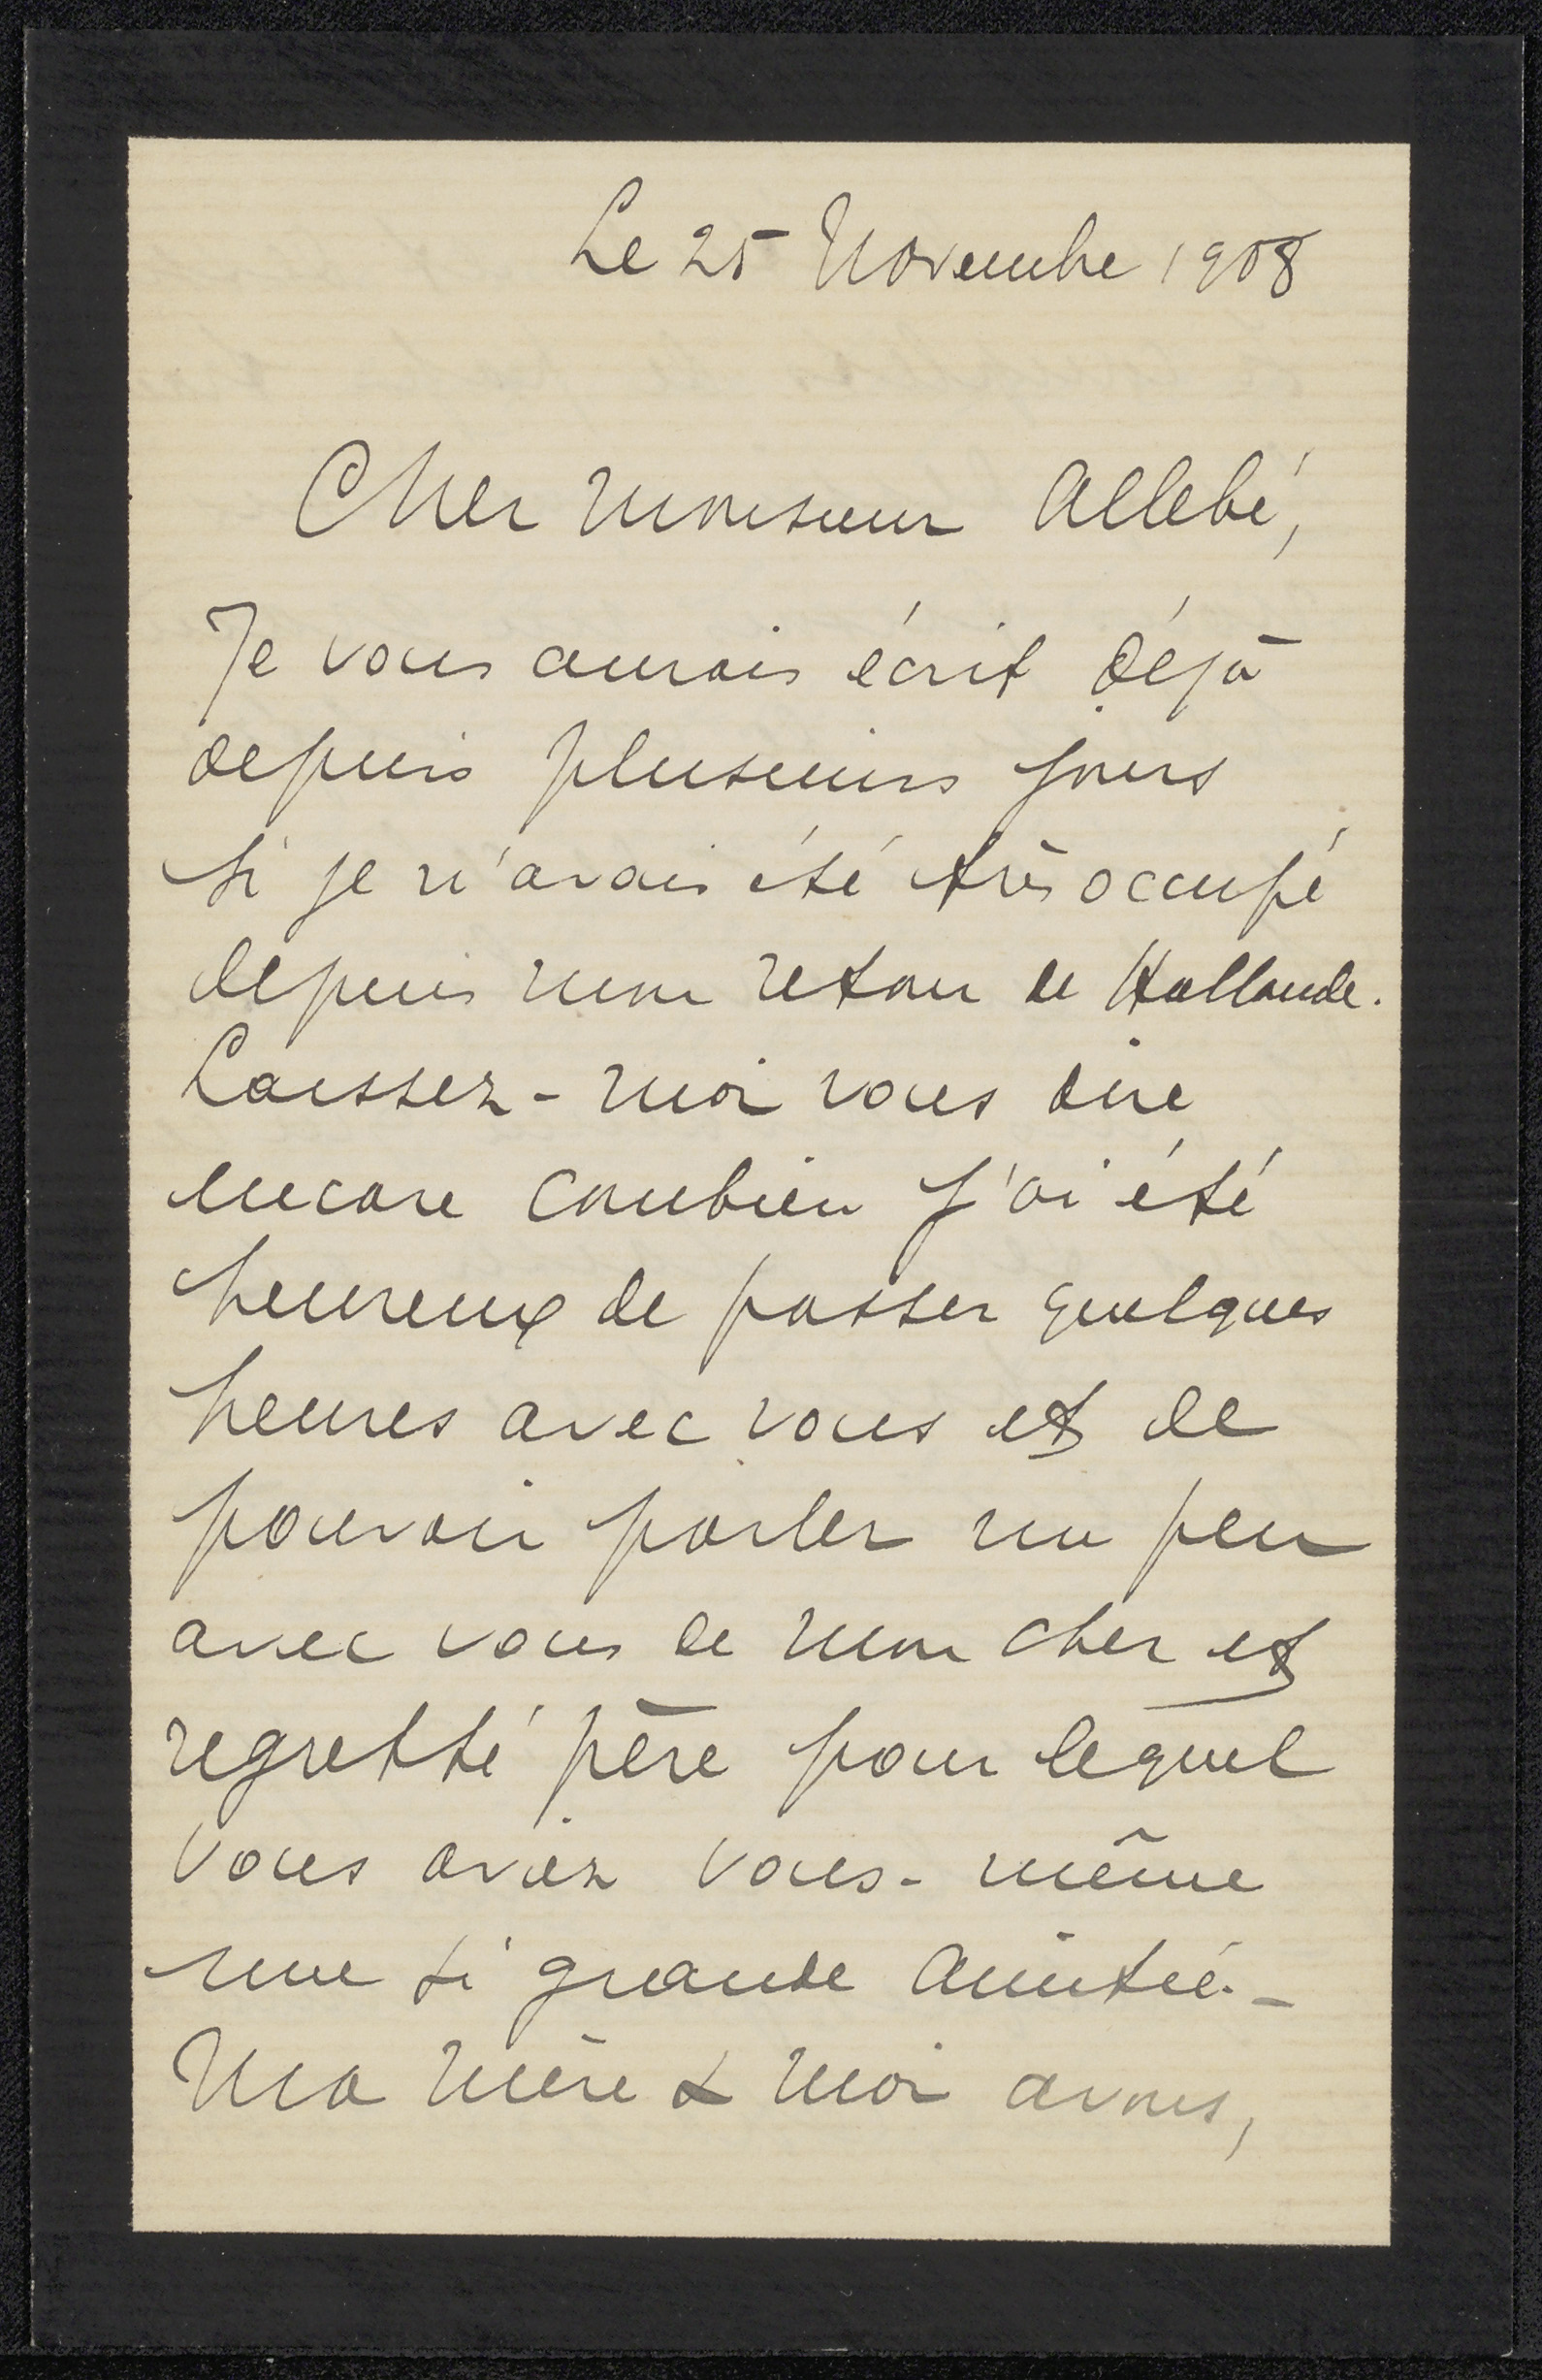 Le 25 Novembre 1908
Cher Monsieur Allebé,
Je vous aurais écrit déjà
depuis plusieurs jours
si je n'avais été très occupé
depuis mon retour de Hollande.
Laissez-moi vous dire
encore combien j'ai été
heureux de passer quelques
heures avec vous et de
pouvoir parler un peu
avec vous de mon cher et
regretté père pour lequel
vous aviez vous-même
une si grande amitié. –
Ma mère & moi avons,